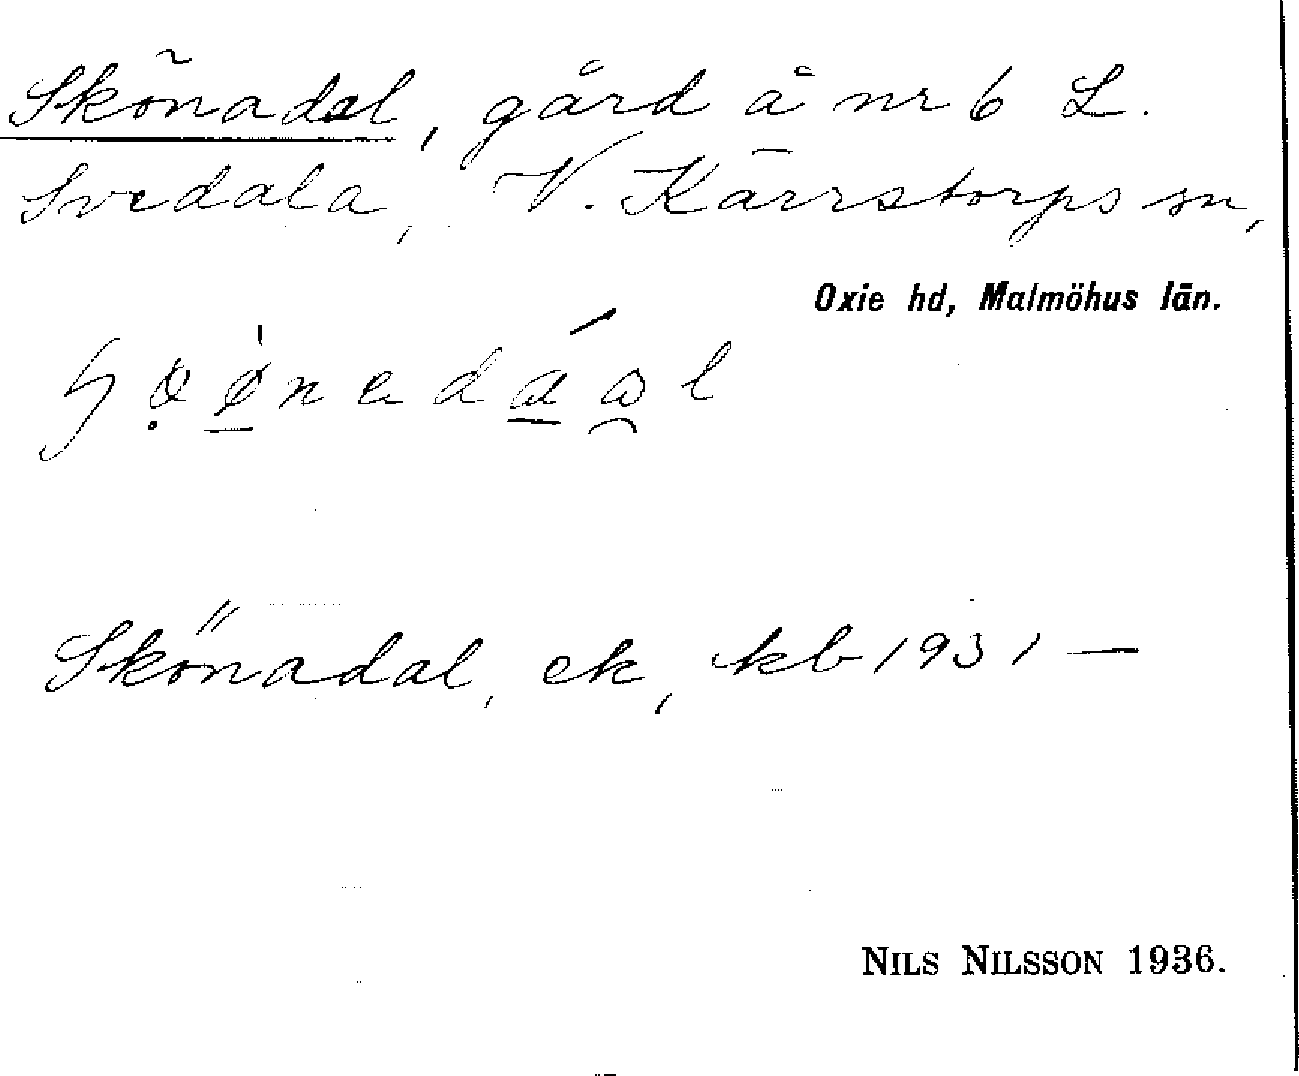 Skönadal, gård å nr 6 L.
Svedala, V. Kärrstorps sn,
Oxie hd, Malmöhus län.
Skönadal, ek, kb 1931 —
NILS NILSSON 1936.